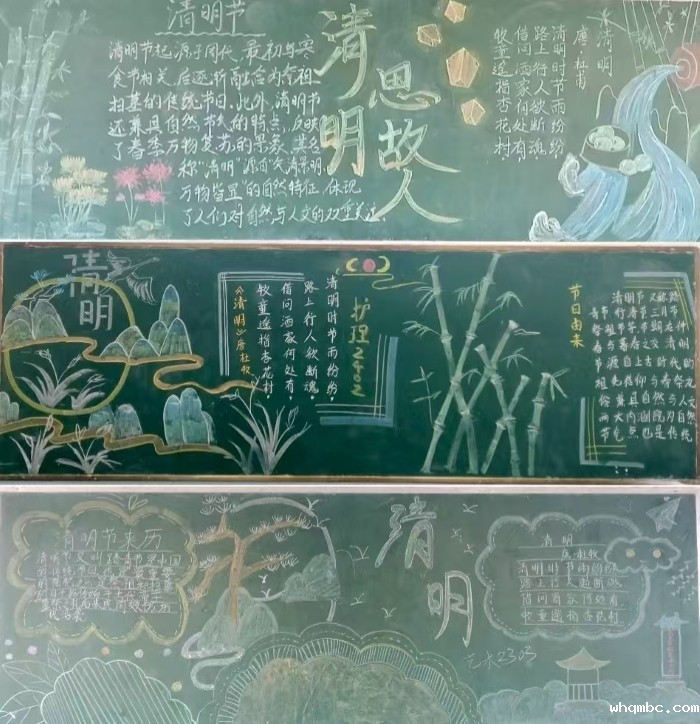 清明节
清明节起源于周代,最初与寒
食节相关,后逐渐融合为祭祖
扫墓的传统节日,此外,清明节
还兼具自然节气的特点,反映
了春季万物复苏的景象,其名
称“清明”源自“天清景明,
万物皆显”的自然特征,体现
了人们对自然与人文的双重关注。
清明
思故人
清明
唐·杜甫
清明时节雨纷纷
路上行人欲断魂
借问酒家何处有
牧童遥指杏花村
清明
清明时节雨纷纷,
路上行人欲断魂。
借问酒家何处有,
牧童遥指杏花村。
《清明》唐 杜牧
护理2402
节日由来
清明节又称踏
青节 行清节 三月节
祭祖节等 节期在仲
春与暮春之交 清明
节 源自上古时代的
祖先信仰与春祭礼
俗 兼具自然与人文
两大内涵 既为自然
节气点 也是传统
清明节来历
清明
艺术2303
清明
唐 杜牧
清明时节雨纷纷
路上行人欲断魂
借问酒家何处有
牧童遥指杏花村
whqmbc.com